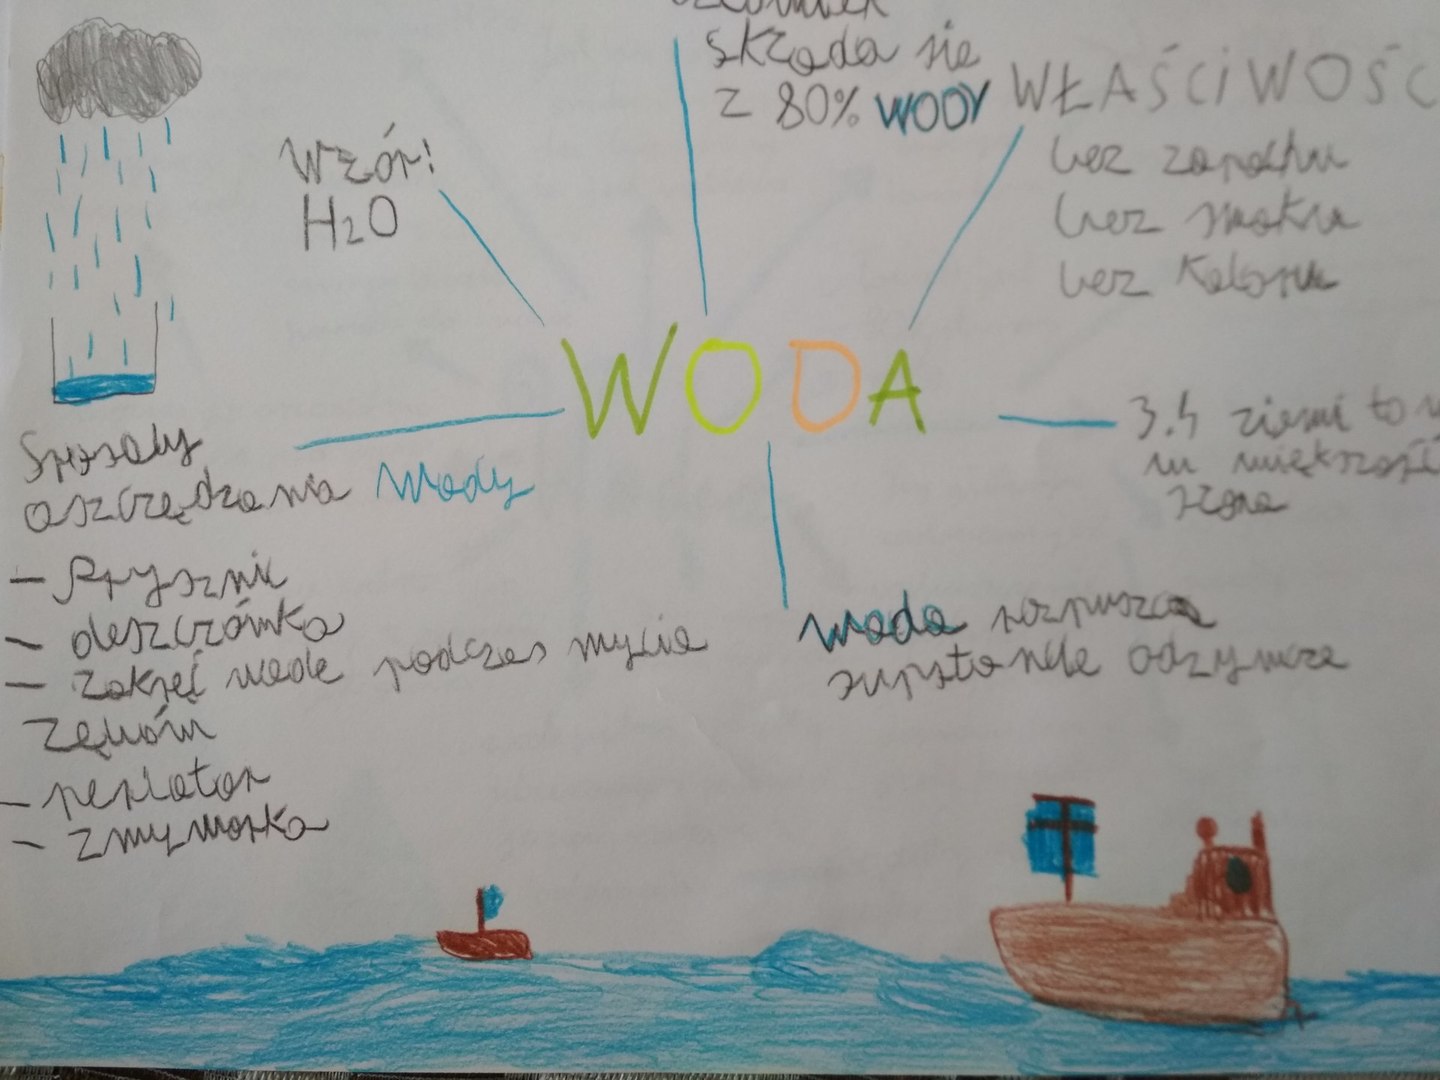 człowiek
składa się
z 80% WODY
WŁAŚCIWOŚC
bez zapachu
bez smaku
bez koloru
Wzór!
H2O
WODA
3.4 ziemi to w
w większość
słona
Sposoby
oszczędzania Wody
- Prysznic
- deszczówka
- Zakręć wode podczas mycia
zębów
- perlator
- Zmywarka
Woda rozpuszcza
supstancje odżywcze